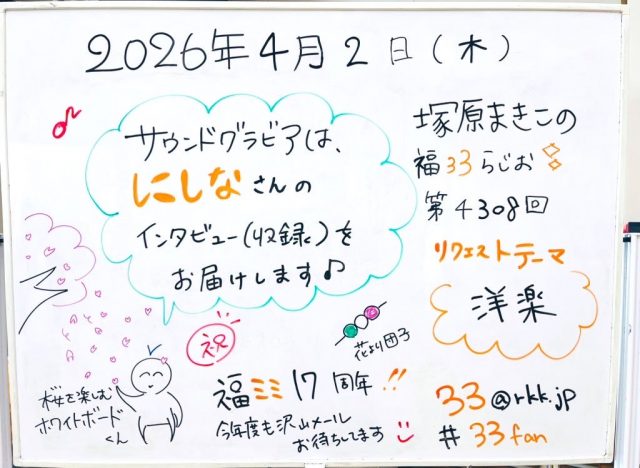 2026年4月2日(木)
サウンドグラビアは、
にしなさんの
インタビュー(収録)を
お届けします♪
塚原まきこの
福33らじお
第4308回
リクエストテーマ
洋楽
花より団子
祝
福ミミ17周年!!
今年度も沢山メール
お待ちしてます
桜を楽しむ
ホワイトボード
くん
33@rkk.jp
#33fan